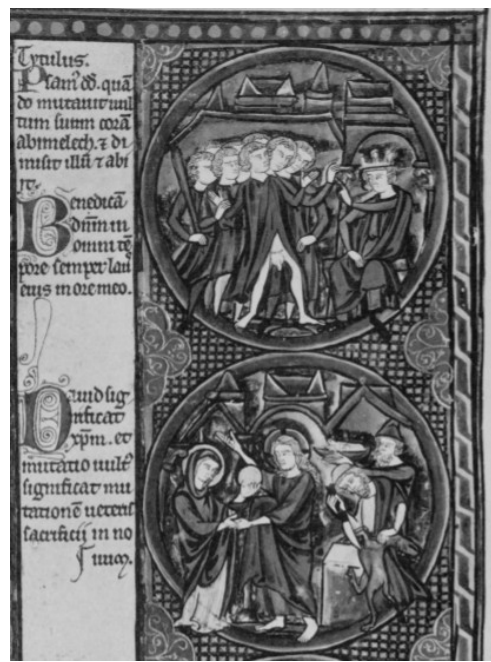 Tytulus.
Psam̄ d̄d. quā
do mutauit uul
tum suum corā
abimelech. ⁊ di
misit illū ⁊ abi
it.
Benedicā
dn̄m in
omni tē
pore semper laus
eius in ore meo.
Dauid sig
nificat
xp̄m. et
mutatio uult᷒
significat mu
tationē ueteris
sacrificij in no
uum.